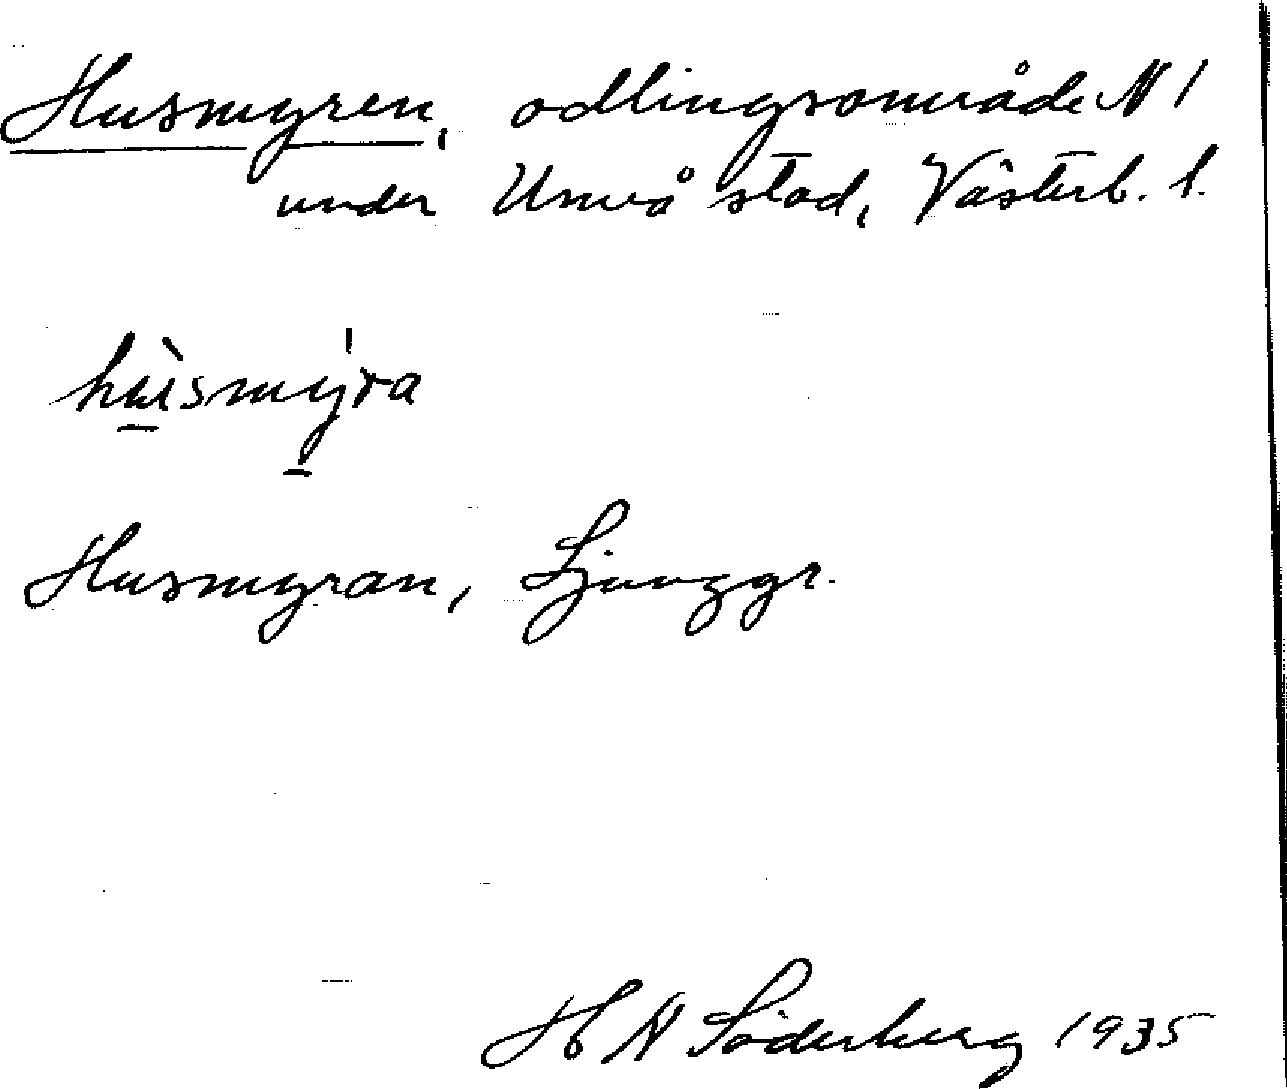 Husmyren, odlingsområde N 1
under Umeå stad, Västerb. l.
hùsmýra
Husmyran, Ljunggr.
H N Söderberg 1935